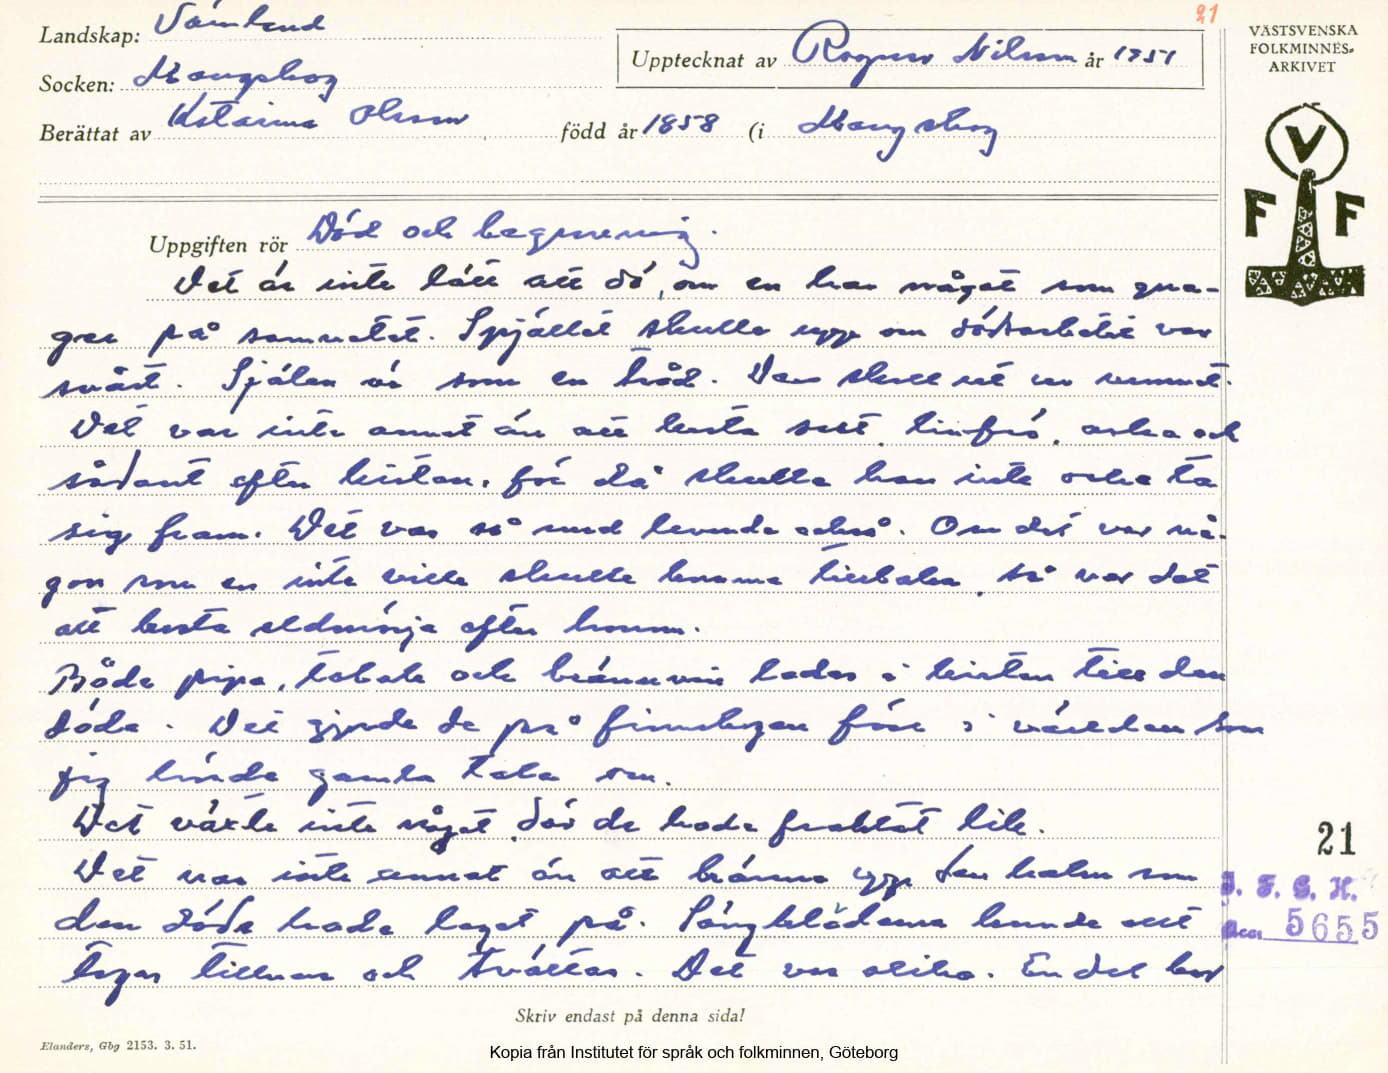 21
Landskap: Värmland
Socken: Mangskog
Berättat av Katarina Olsson född år 1858 (i Mangskog
Upptecknat av Ragnar Nilsson år 1951
VÄSTSVENSKA
FOLKMINNES-
ARKIVET
V
F F
Uppgiften rör Död och begravning.
Det är inte lätt att dö, om en har något som gna-
ger på samvetet. Spjället skulle upp om dödsarbetet var
svårt. Själen är som en tråd. Den skull ut ur rummet.
Det var inte annat än att kasta salt, linfrö, aska och
sådant efter kistan, för då skulle han inte orka ta
sig fram. Det var så med levande också. Om det var nå-
gon som en inte ville skulle komma tillbaka, så var det
att kasta eldmörja efter honom.
Både pipa, tobak och brännvin lades i kistan till den
döde. Det gjorde de på finnskogen förr i världen som
jig hörde gamla tala om.
Det växte inte något, där de hade fraktat lik.
Det var inte annat än att bränna upp den halm som
den döde hade legat på. Sängkläderna kunde att
togs tillvara och tvättas. Det var olika. En del har
21
I. F. G. H.
Acc. 5655
Skriv endast på denna sida!
Elanders, Gbg 2153. 3. 51.
Kopia från Institutet för språk och folkminnen, Göteborg